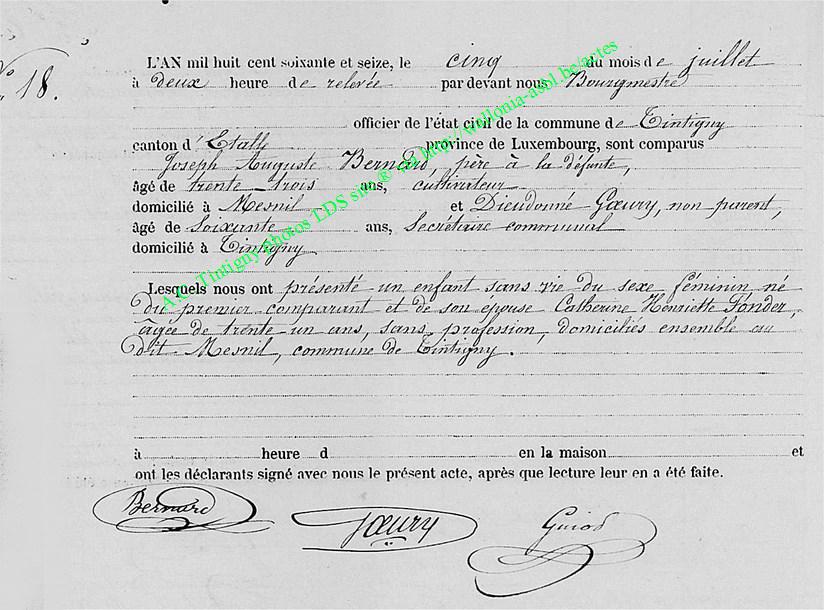 N° 18.
L'AN mil huit cent soixante et seize, le cinq du mois de juillet
à deux heure de relevée par devant nous Bourgmestre
officier de l'état civil de la commune de Tintigny
canton d'Etalle province de Luxembourg, sont comparus
Joseph Auguste Bernard, père à la défunte,
âgé de trente-trois ans, cultivateur
domicilié à Mesnil et Dieudonné Gœury, non parent,
âgé de Soixante ans, Secrétaire communal
domicilié à Tintigny
Lesquels nous ont présenté un enfant sans vie du sexe féminin né
du premier comparant et de son épouse Catherine Henriette Fonder,
âgée de trente-un ans, sans profession, domiciliés ensemble au
dit Mesnil, commune de Tintigny.
à heure d en la maison et
ont les déclarants signé avec nous le présent acte, après que lecture leur en a été faite.
Bernard Gœury
A.C. Tintigny photos LDS site ® via http://wallonia-asbl.be/actes